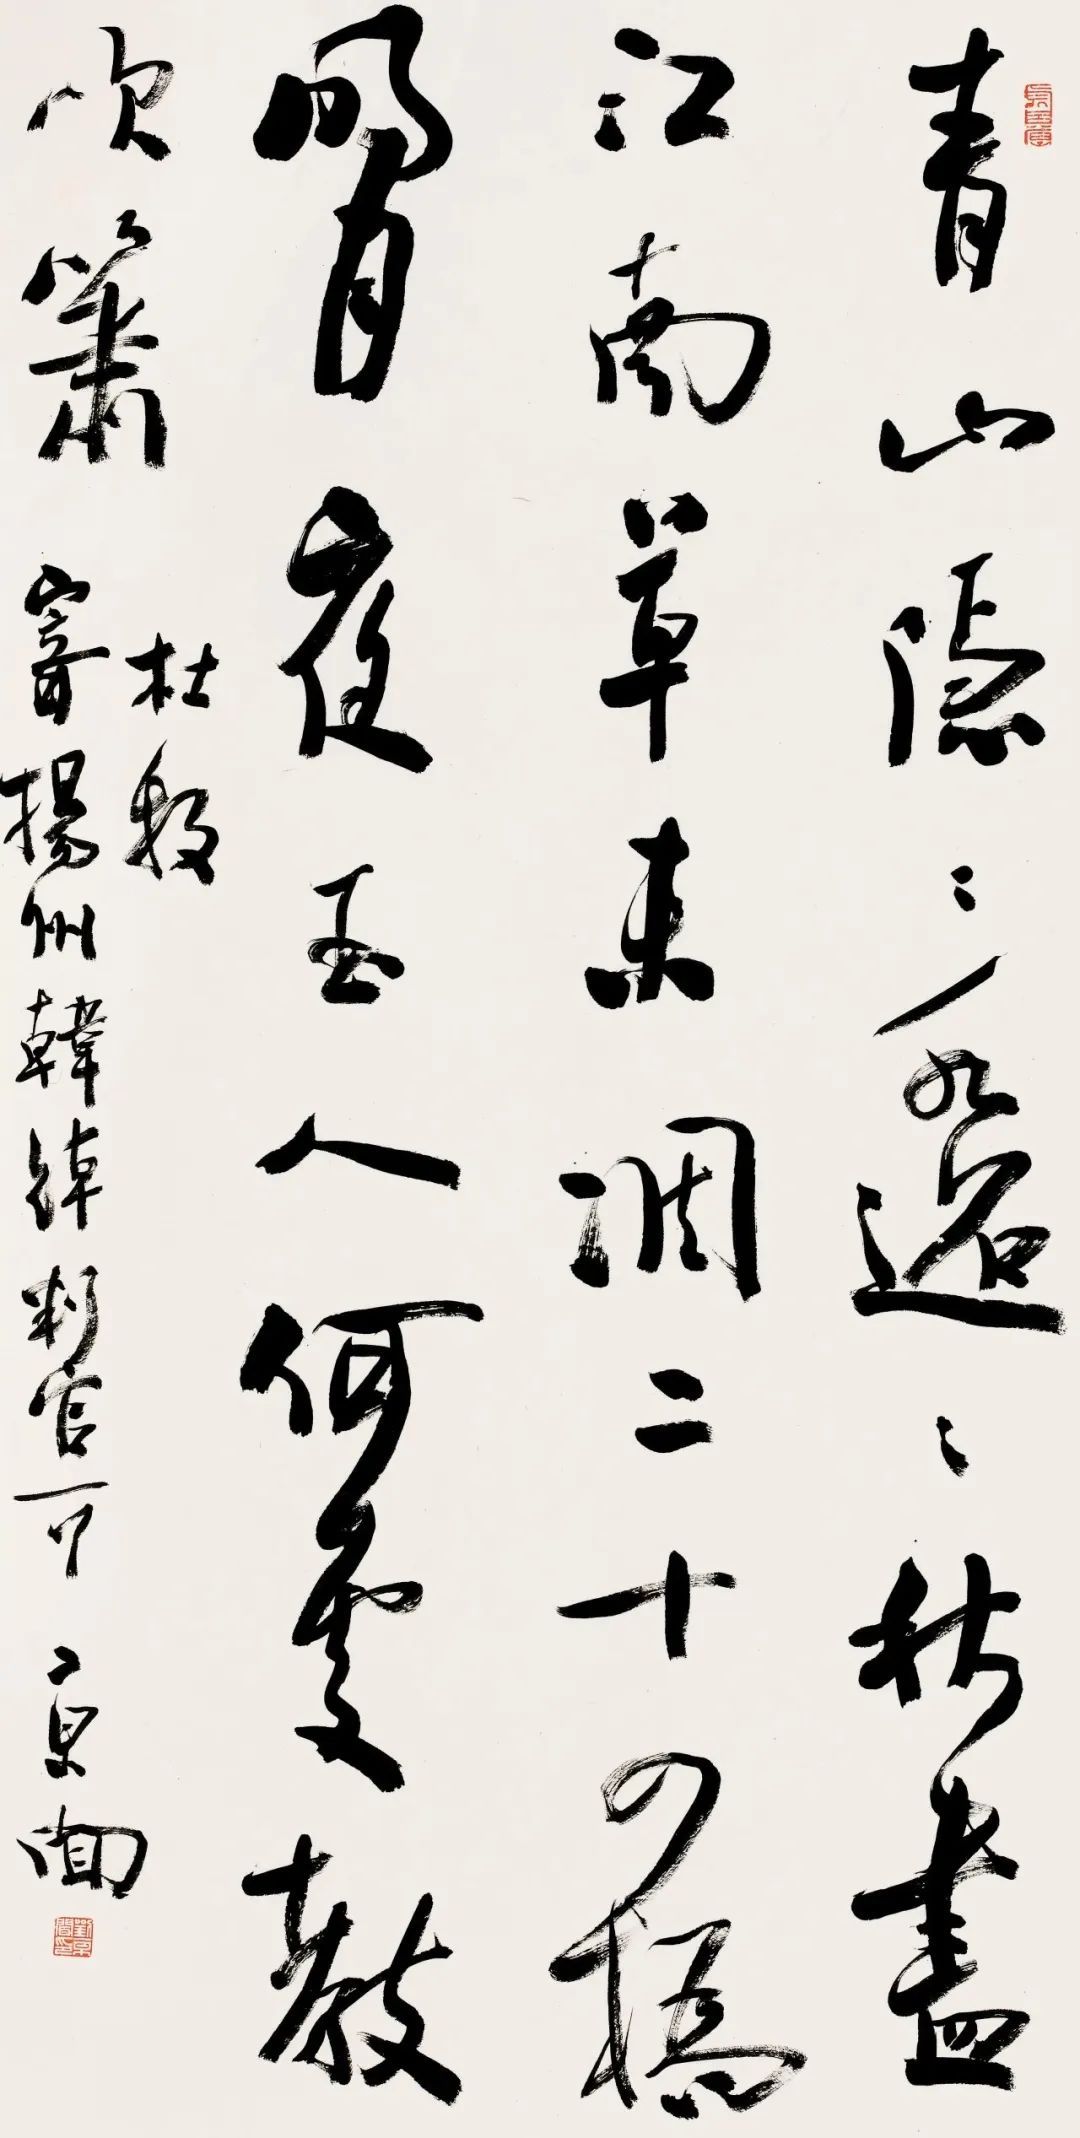 青山隱〻水迢〻秋盡
江南草未凋二十四橋
明月夜玉人何處教
吹簫
杜牧
寄揚州韓綽判官
京聞